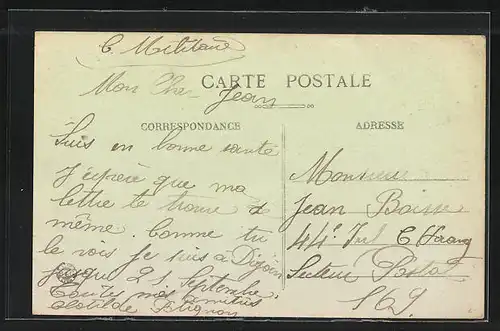 C. Militaire
CARTE POSTALE
Mon Cher Jean
CORRESPONDANCE
Suis en bonne santé
J'espère que ma
lettre te trouve de
même. Comme tu
le vois je suis à Dijon
jusqu 21 Septembre
Toutes mes amitiés
Clotilde
ADRESSE
Monsieur
Jean
44e Inf
Secteur Postal
169